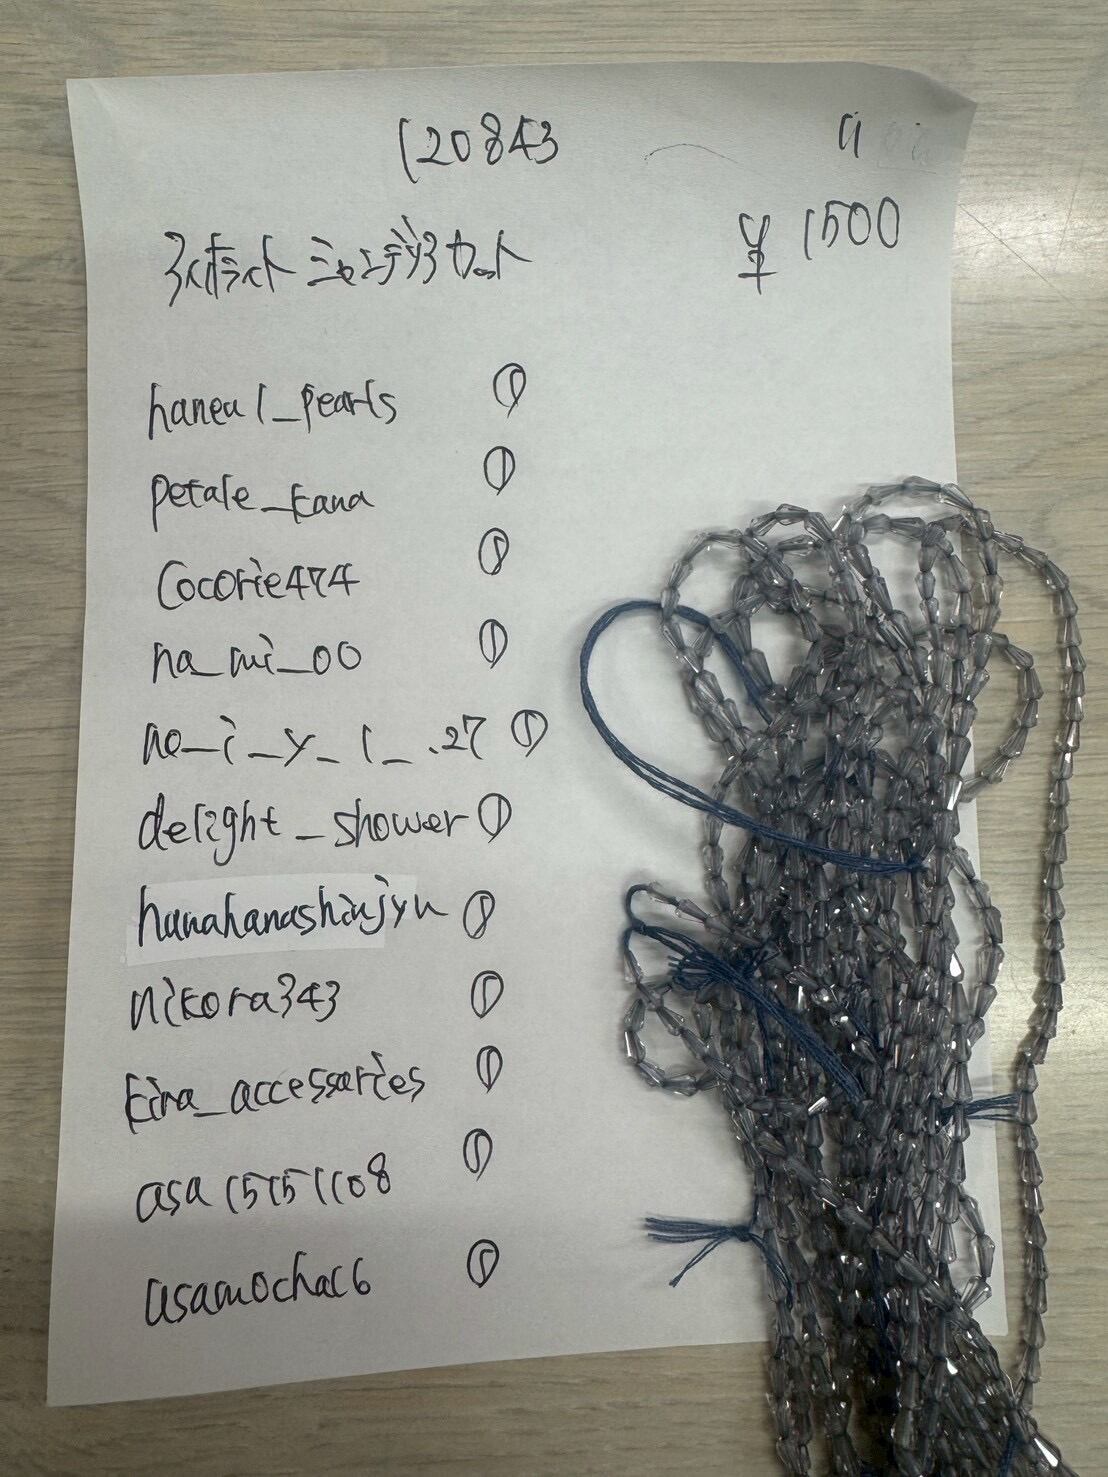 120843
¥ 1500
アイオライト シャンデリアカット
haneul_pearls ①
petale_kana ①
cocorie474 ①
na_mi_00 ①
no_i_y_1_.27 ①
delight_shower ①
hanahanashinjyu ①
nikora343 ①
kira_accessaries ①
asa15151108 ①
asamocha16 ①